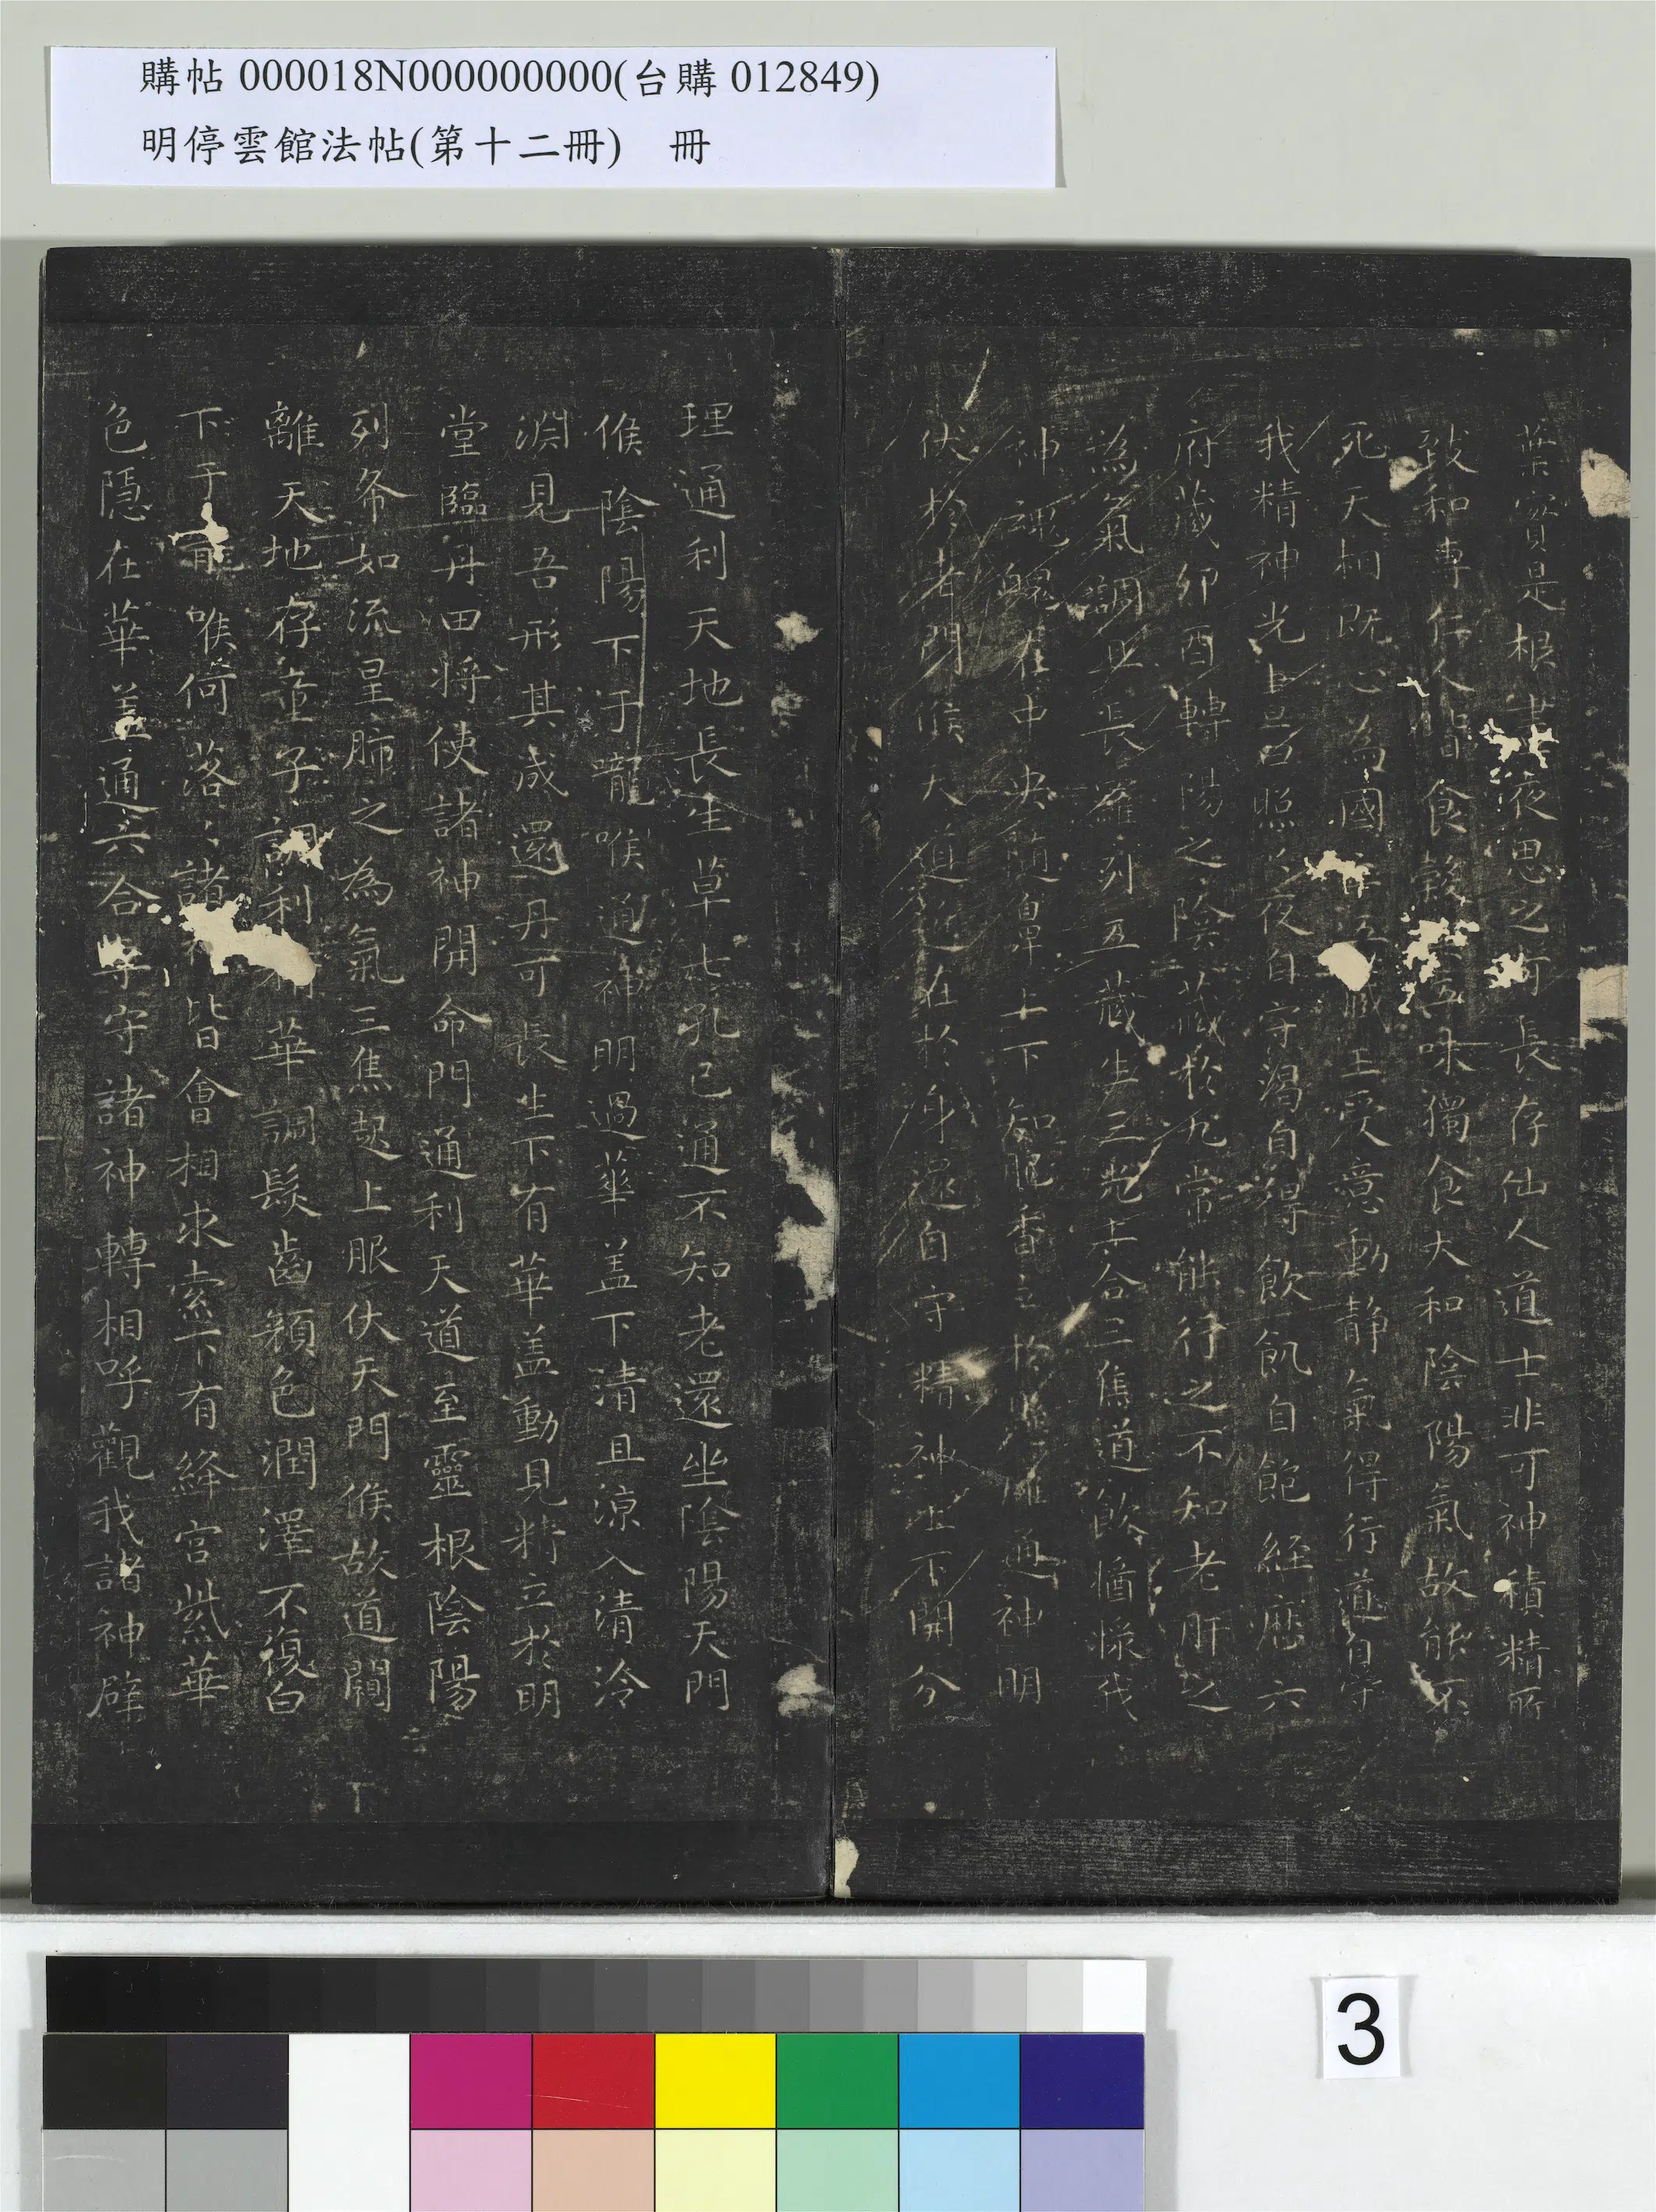 購帖 000018N000000000(台購 012849)
明停雲館法帖(第十二冊) 冊
葉實是根晝夜思之可長存仙人道士非可神積精所
致和專仁人皆食穀五味獨食大和陰陽氣故能不
死天相既心為國主五藏王受意動靜氣得行道自守
我精神光旦日昭昭夜自守渴自得飲飢自飽經歷六
府藏卯酉轉陽之陰藏於九常能行之不知老肝之
為氣調且長羅列五藏生三光上合三焦道飲醬漿我
神魂魄在中央隨鼻上下知肥香立於懸雍通神明
伏於老門候天道近在於身還自守精神上下開分
理通利天地長生草七孔已通不知老還坐陰陽天門
候陰陽下于嚨喉通神明過華盖下清且涼入清泠
淵見吾形其成還丹可長生下有華盖動見精立於明
堂臨丹田將使諸神開命門通利天道至靈根陰陽
列布如流星肺之為氣三焦起上服伏天門候故道闚
離天地存童子調利精華調髮齒顏色潤澤不復白
下于嚨喉何落落諸神皆會相求索下有絳宮紫華
色隱在華盖通六合專守諸神轉相呼觀我諸神辟
3